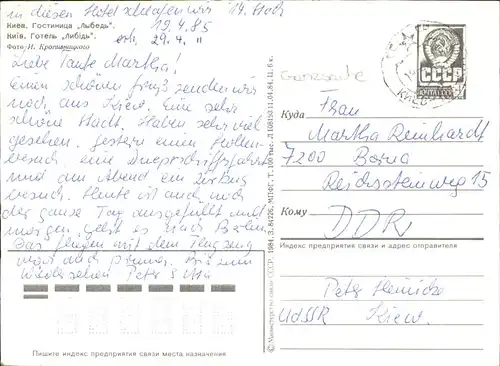 in diesem Hotel schlafen wir 14. Stock
Киев. Гостиница „Лыбедь“. 19.4.85
Київ. Готель „Либідь“. erh. 29.4. "
Фото И. Кропивницкого
Liebe Tante Martha!
Einen schönen Gruß senden wir
noch aus Kiew. Eine sehr
schöne Stadt. Haben sehr viel
gesehen. Gestern einen Höhlen-
besuch, eine Dneprschiffahrt
und am Abend ein Zirkus
besuch. Heute ist auch noch
der ganze Tag ausgefüllt und
morgen geht es nach Berlin.
Das fliegen mit dem Flugzeug
war auch prima. Bis zum
Wiedersehen Peter &
Пишите индекс предприятия связи места назначения
© Министерство связи СССР. 1984. З. 84226, МПФГ, Т. 100 тыс. 2108150.11.04.84. Ц. 6 к.
Ganzsache
СССР
КИЕВ
Куда Frau
Martha Reinhardt
7200 Borna
Reichssteinweg 15
Кому DDR
Индекс предприятия связи и адрес отправителя
Peter Heinicke
UdSSR Kiew